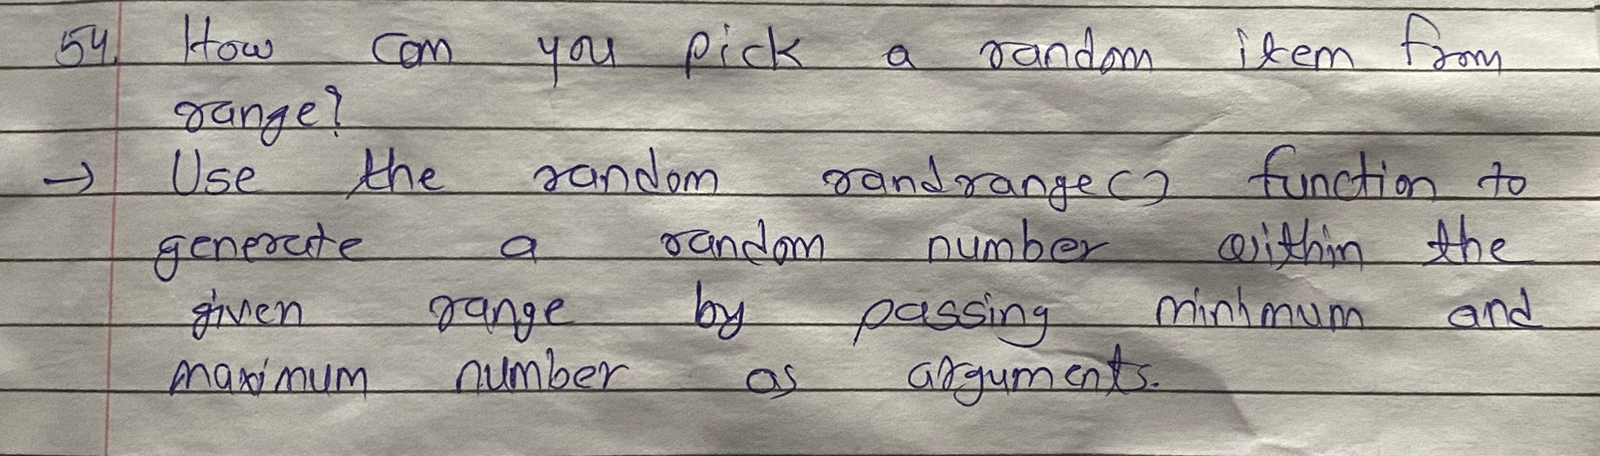 54. How can you pick a random item from
range?
→ Use the random randrange() function to
generate a random number within the
given range by passing minimum and
maximum number as arguments.